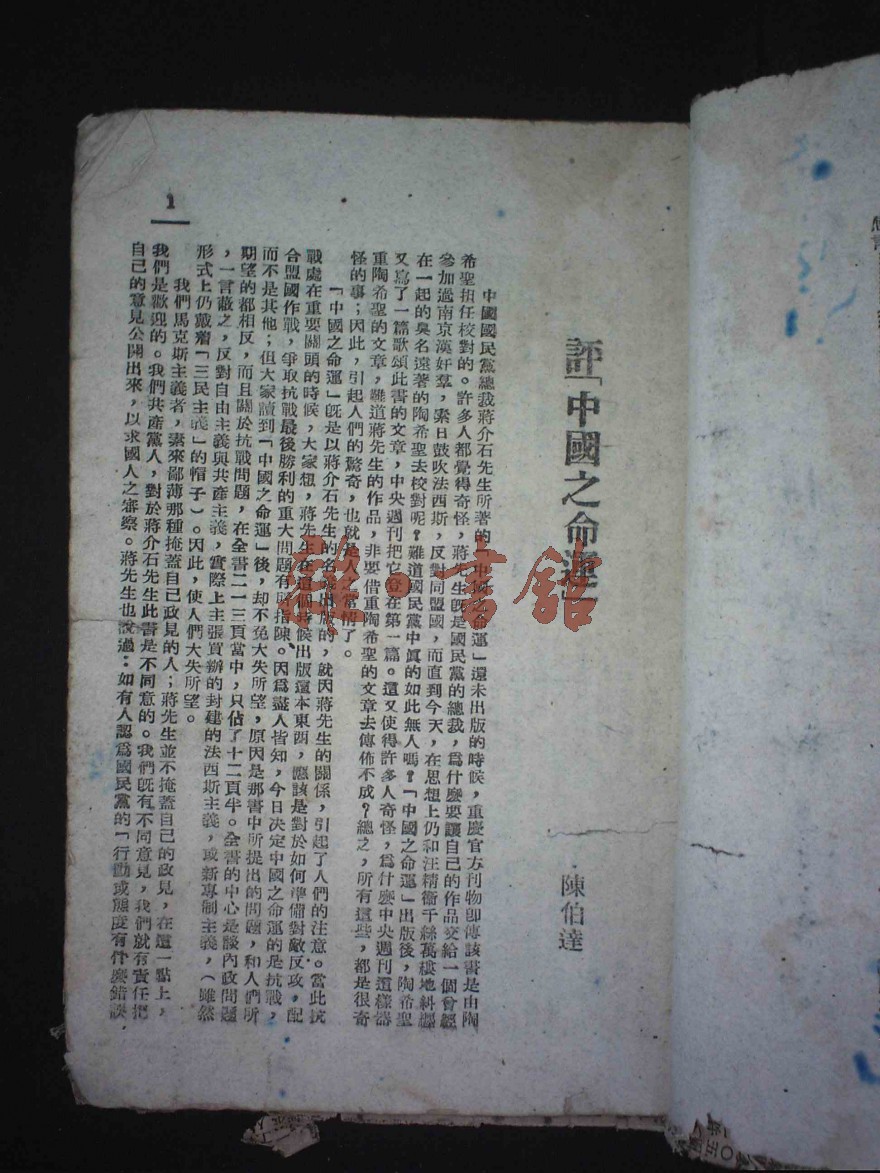 評「中國之命運」
陳伯達
中國國民黨總裁蔣介石先生所著的「中國之命運」還未出版的時候，重慶官方刊物即傳該書是由陶
希聖担任校對的。許多人都覺得奇怪，蔣先生旣是國民黨的總裁，爲什麽要讓自己的作品交給一個曾經
參加過南京漢奸羣，素日鼓吹法西斯，反對同盟國，而直到今天，在思想上仍和汪精衞千絲萬縷地糾纏
在一起的臭名遠著的陶希聖去校對呢？難道國民黨中眞的如此無人嗎？「中國之命運」出版後，陶希聖
又寫了一篇歌頌此書的文章，中央週刊把它登在第一篇。這又使得許多人奇怪，爲什麽中央週刊這樣器
重陶希聖的文章，難道蔣先生的作品，非要借重陶希聖的文章去傳佈不成？總之，所有這些，都是很奇
怪的事；因此，引起人們的驚奇，也就是人之常情了。
「中國之命運」旣是以蔣介石先生的名義出版的，就因蔣先生的關係，引起了人們的注意。當此抗
戰處在重要關頭的時候，大家想，蔣先生在這個時候出版這本東西，應該是對於如何準備對敵反攻，配
合盟國作戰，爭取抗戰最後勝利的重大問題有所指陳。因爲盡人皆知，今日決定中國之命運的是抗戰，
而不是其他；但大家讀到「中國之命運」後，却不免大失所望，原因是那書中所提出的問題，和人們所
期望的都相反，而且關於抗戰問題，在全書二一三頁當中，只佔了十二頁半。全書的中心是談內政問題
，一言蔽之，反對自由主義與共產主義，實際上主張買辦的封建的法西斯主義，或新專制主義，（雖然
形式上仍戴着「三民主義」的帽子）。因此，使人們大失所望。
我們馬克斯主義者，素來鄙薄那種掩蓋自己政見的人；蔣先生並不掩蓋自己的政見，在這一點上，
我們是歡迎的。我們共產黨人，對於蔣介石先生此書是不同意的。我們旣有不同意見，我們就有責任把
自己的意見公開出來，以求國人之審察。蔣先生也說過：如有人認爲國民黨的「行動或態度有什麽錯誤，
1
雜·書館